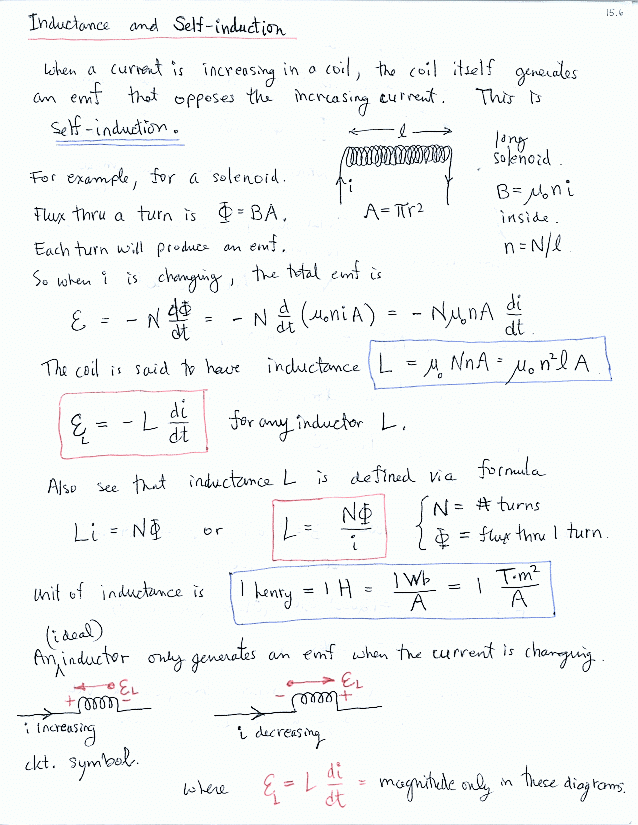 15.6
Inductance and Self-induction
When a current is increasing in a coil, the coil itself generates
an emf that opposes the increasing current. This is
Self-induction.
← l →
long
solenoid.
For example, for a solenoid.
i
B = μ₀ni
Flux thru a turn is Φ = BA.
A = πr²
inside.
Each turn will produce an emf.
n = N/l
So when i is changing, the total emf is
ℰ = - N dΦ/dt = - N d/dt (μ₀niA) = - Nμ₀nA di/dt.
The coil is said to have inductance L = μ₀NnA = μ₀n²lA.
ℰ_L = - L di/dt for any inductor L.
Also see that inductance L is defined via formula
Li = NΦ or L = NΦ/i { N = # turns
Φ = flux thru 1 turn.
unit of inductance is 1 henry = 1 H = 1 Wb/A = 1 T·m²/A
(ideal)
An ∧ inductor only generates an emf when the current is changing.
← ℰ_L → ℰ_L
+ - - +
i increasing i decreasing
ckt. symbol.
where ℰ_L = L di/dt = magnitude only in these diagrams.